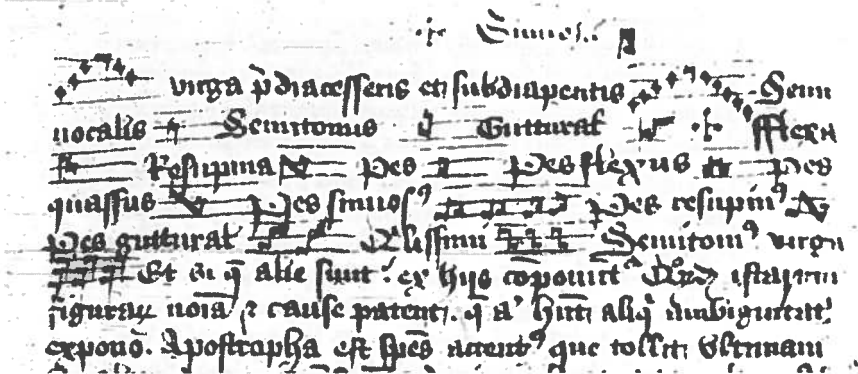 Sinuos.
virga p̄diatesseris et subdiapentis Semi
vocalis Semitonus Guttural fflexa
Resupina Pes Pes flexus Pes
quassus Pes sinuosꝰ Pes resupinꝰ
Pes guttural Semitonꝰ virga
Et si q̄ alie sunt ex hiis cōponūtᵉ istarum
figurarꝝ noīa ⁊ cause patent. q̄ aͥ hn̄t aliqͥ ambiguitat
expono. Apostropha est sp̄es accentꝰ que tollit vltimam